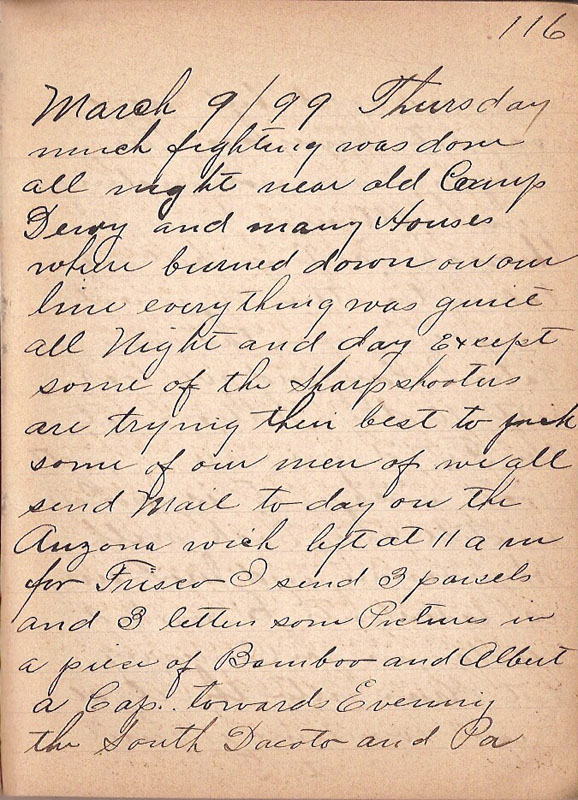 116
March 9/99 Thursday
much fighting was done
all night near old Camp
Dewy and many Houses
where burned down on our
line everything was quiet
all Night and day Except
some of the Sharpshooters
are trynig their best to pick
some of our men of we all
send Mail to day on the
Anzona wich left at 11 a m
for Frisco I send 3 parsels
and 3 letters som Pictures in
a piece of Bamboo and Albert
a Cap. towards Evening
the South Dacoto and Pa